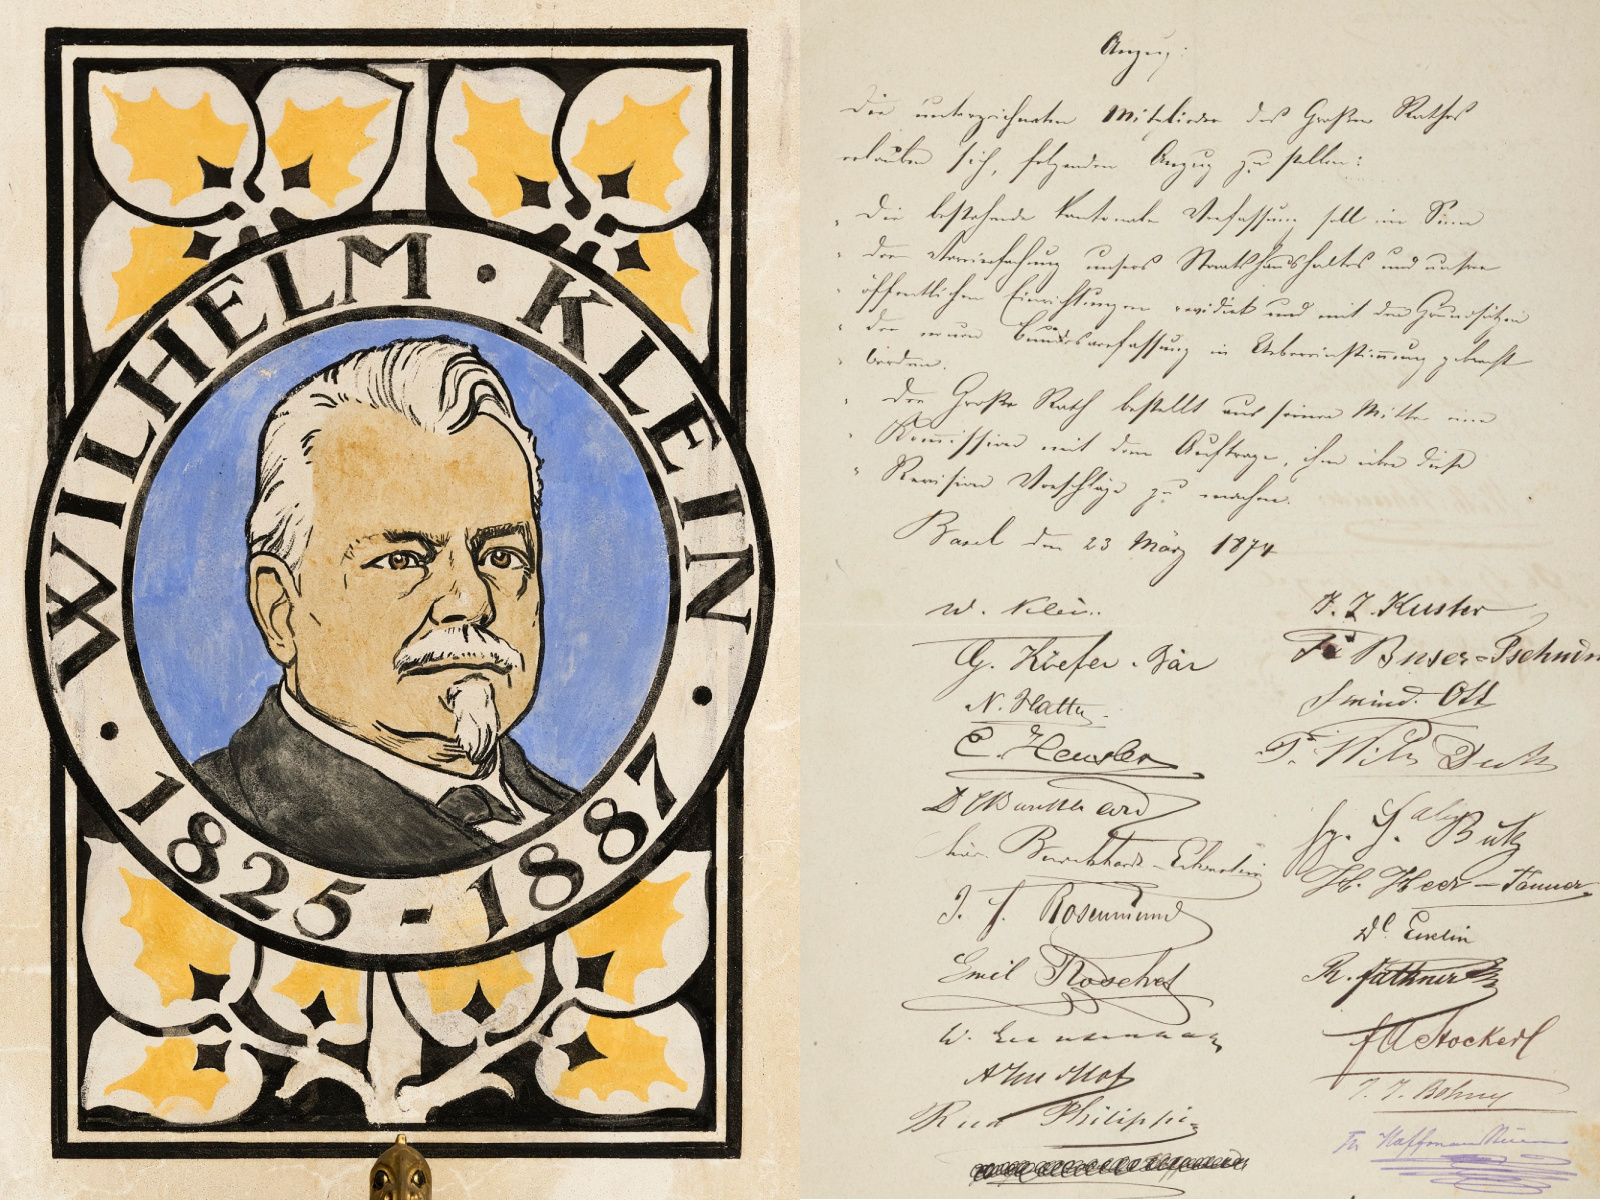 WILHELM · KLEIN
· 1825 - 1887 ·
Anzug:
Die unterzeichneten Mitglieder des Großen Rathes
erlauben sich, folgenden Anzug zu stellen:
„ Die bestehende kantonale Verfassung soll im Sinne
„ der Vereinfachung unsers Staatshaushaltes und unsrer
„ öffentlichen Einrichtungen revidirt und mit den Grundsätzen
„ der neuen Bundesverfassung in Uebereinstimmung gebracht
„ werden.
„ Der Große Rath bestellt aus seiner Mitte eine
„ Kommission mit dem Auftrage, ihm über diese
„ Revision Vorschläge zu machen.
Basel den 23 März 1874
W. Klein.
G. Kiefer-Bär
N. Hatty
C. Heusler
D Burckhard
Burckhardt-
J. J. Rosenmund
Emil Roschet
W.
Rud Philippi
J. J. Kuster
Fr Buser-Tschudin
Ott
F. Wilh
J. Butz
H. Heer-Tanner
Dr.
R. Fäthner
Stockerl
J. J. Bohny
Fr Hoffmann